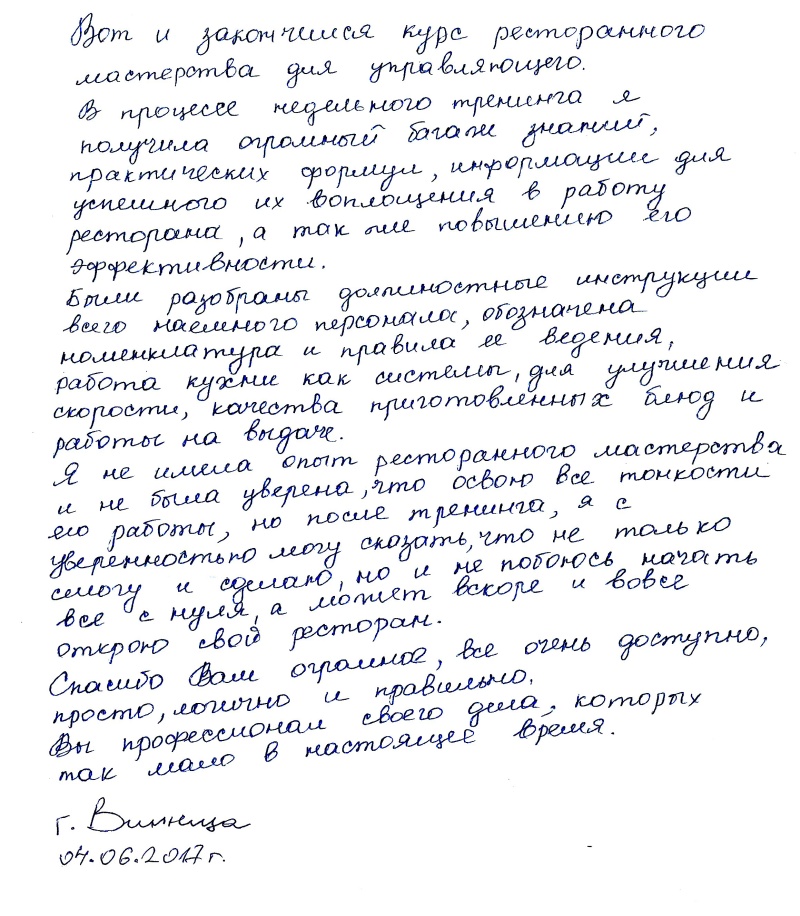 Вот и закончился курс ресторанного
мастерства для управляющего.
В процессе недельного тренинга я
получила огромный багаж знаний,
практических формул, информации для
успешного их воплощения в работу
ресторана, а так же повышению его
эффективности.
Были разобраны должностные инструкции
всего наёмного персонала, обозначена
номенклатура и правила её ведения,
работа кухни как системы, для улучшения
скорости, качества приготовленных блюд и
работы на выдаче.
Я не имела опыт ресторанного мастерства
и не была уверена, что освою все тонкости
его работы, но после тренинга, я с
уверенностью могу сказать, что не только
смогу и сделаю, но и не побоюсь начать
все с нуля, а может вскоре и вовсе
открою свой ресторан.
Спасибо Вам огромное, все очень доступно,
просто, логично и правильно.
Вы профессионал своего дела, которых
так мало в настоящее время.
г. Винница
04.06.2017г.